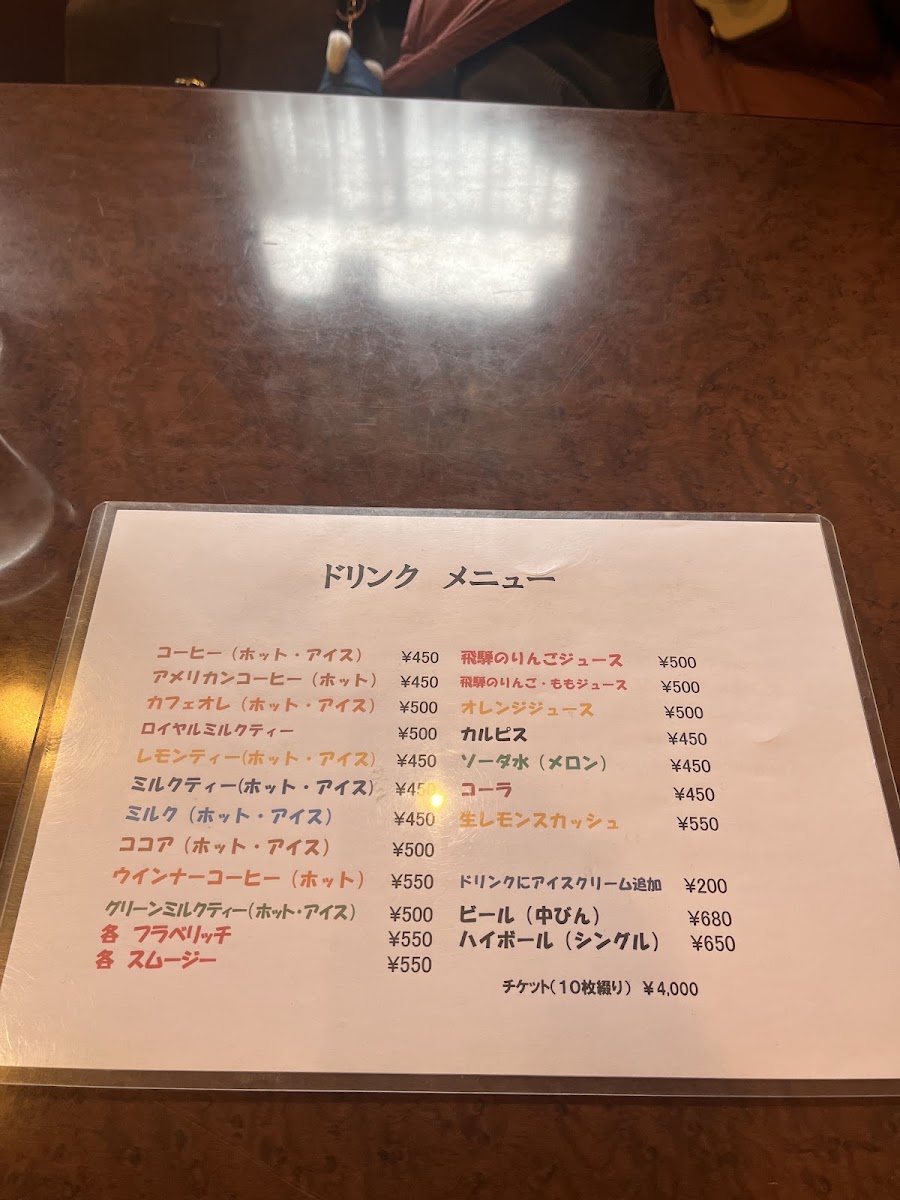 ドリンク メニュー
コーヒー（ホット・アイス） ¥450
アメリカンコーヒー（ホット） ¥450
カフェオレ（ホット・アイス） ¥500
ロイヤルミルクティー ¥500
レモンティー(ホット・アイス) ¥450
ミルクティー(ホット・アイス) ¥450
ミルク（ホット・アイス） ¥450
ココア（ホット・アイス） ¥500
ウインナーコーヒー（ホット） ¥550
グリーンミルクティー(ホット・アイス) ¥500
各 フラペリッチ ¥550
各 スムージー ¥550
飛騨のりんごジュース ¥500
飛騨のりんご・ももジュース ¥500
オレンジジュース ¥500
カルピス ¥450
ソーダ水（メロン） ¥450
コーラ ¥450
生レモンスカッシュ ¥550
ドリンクにアイスクリーム追加 ¥200
ビール（中びん） ¥680
ハイボール（シングル） ¥650
チケット(１０枚綴り) ¥4,000